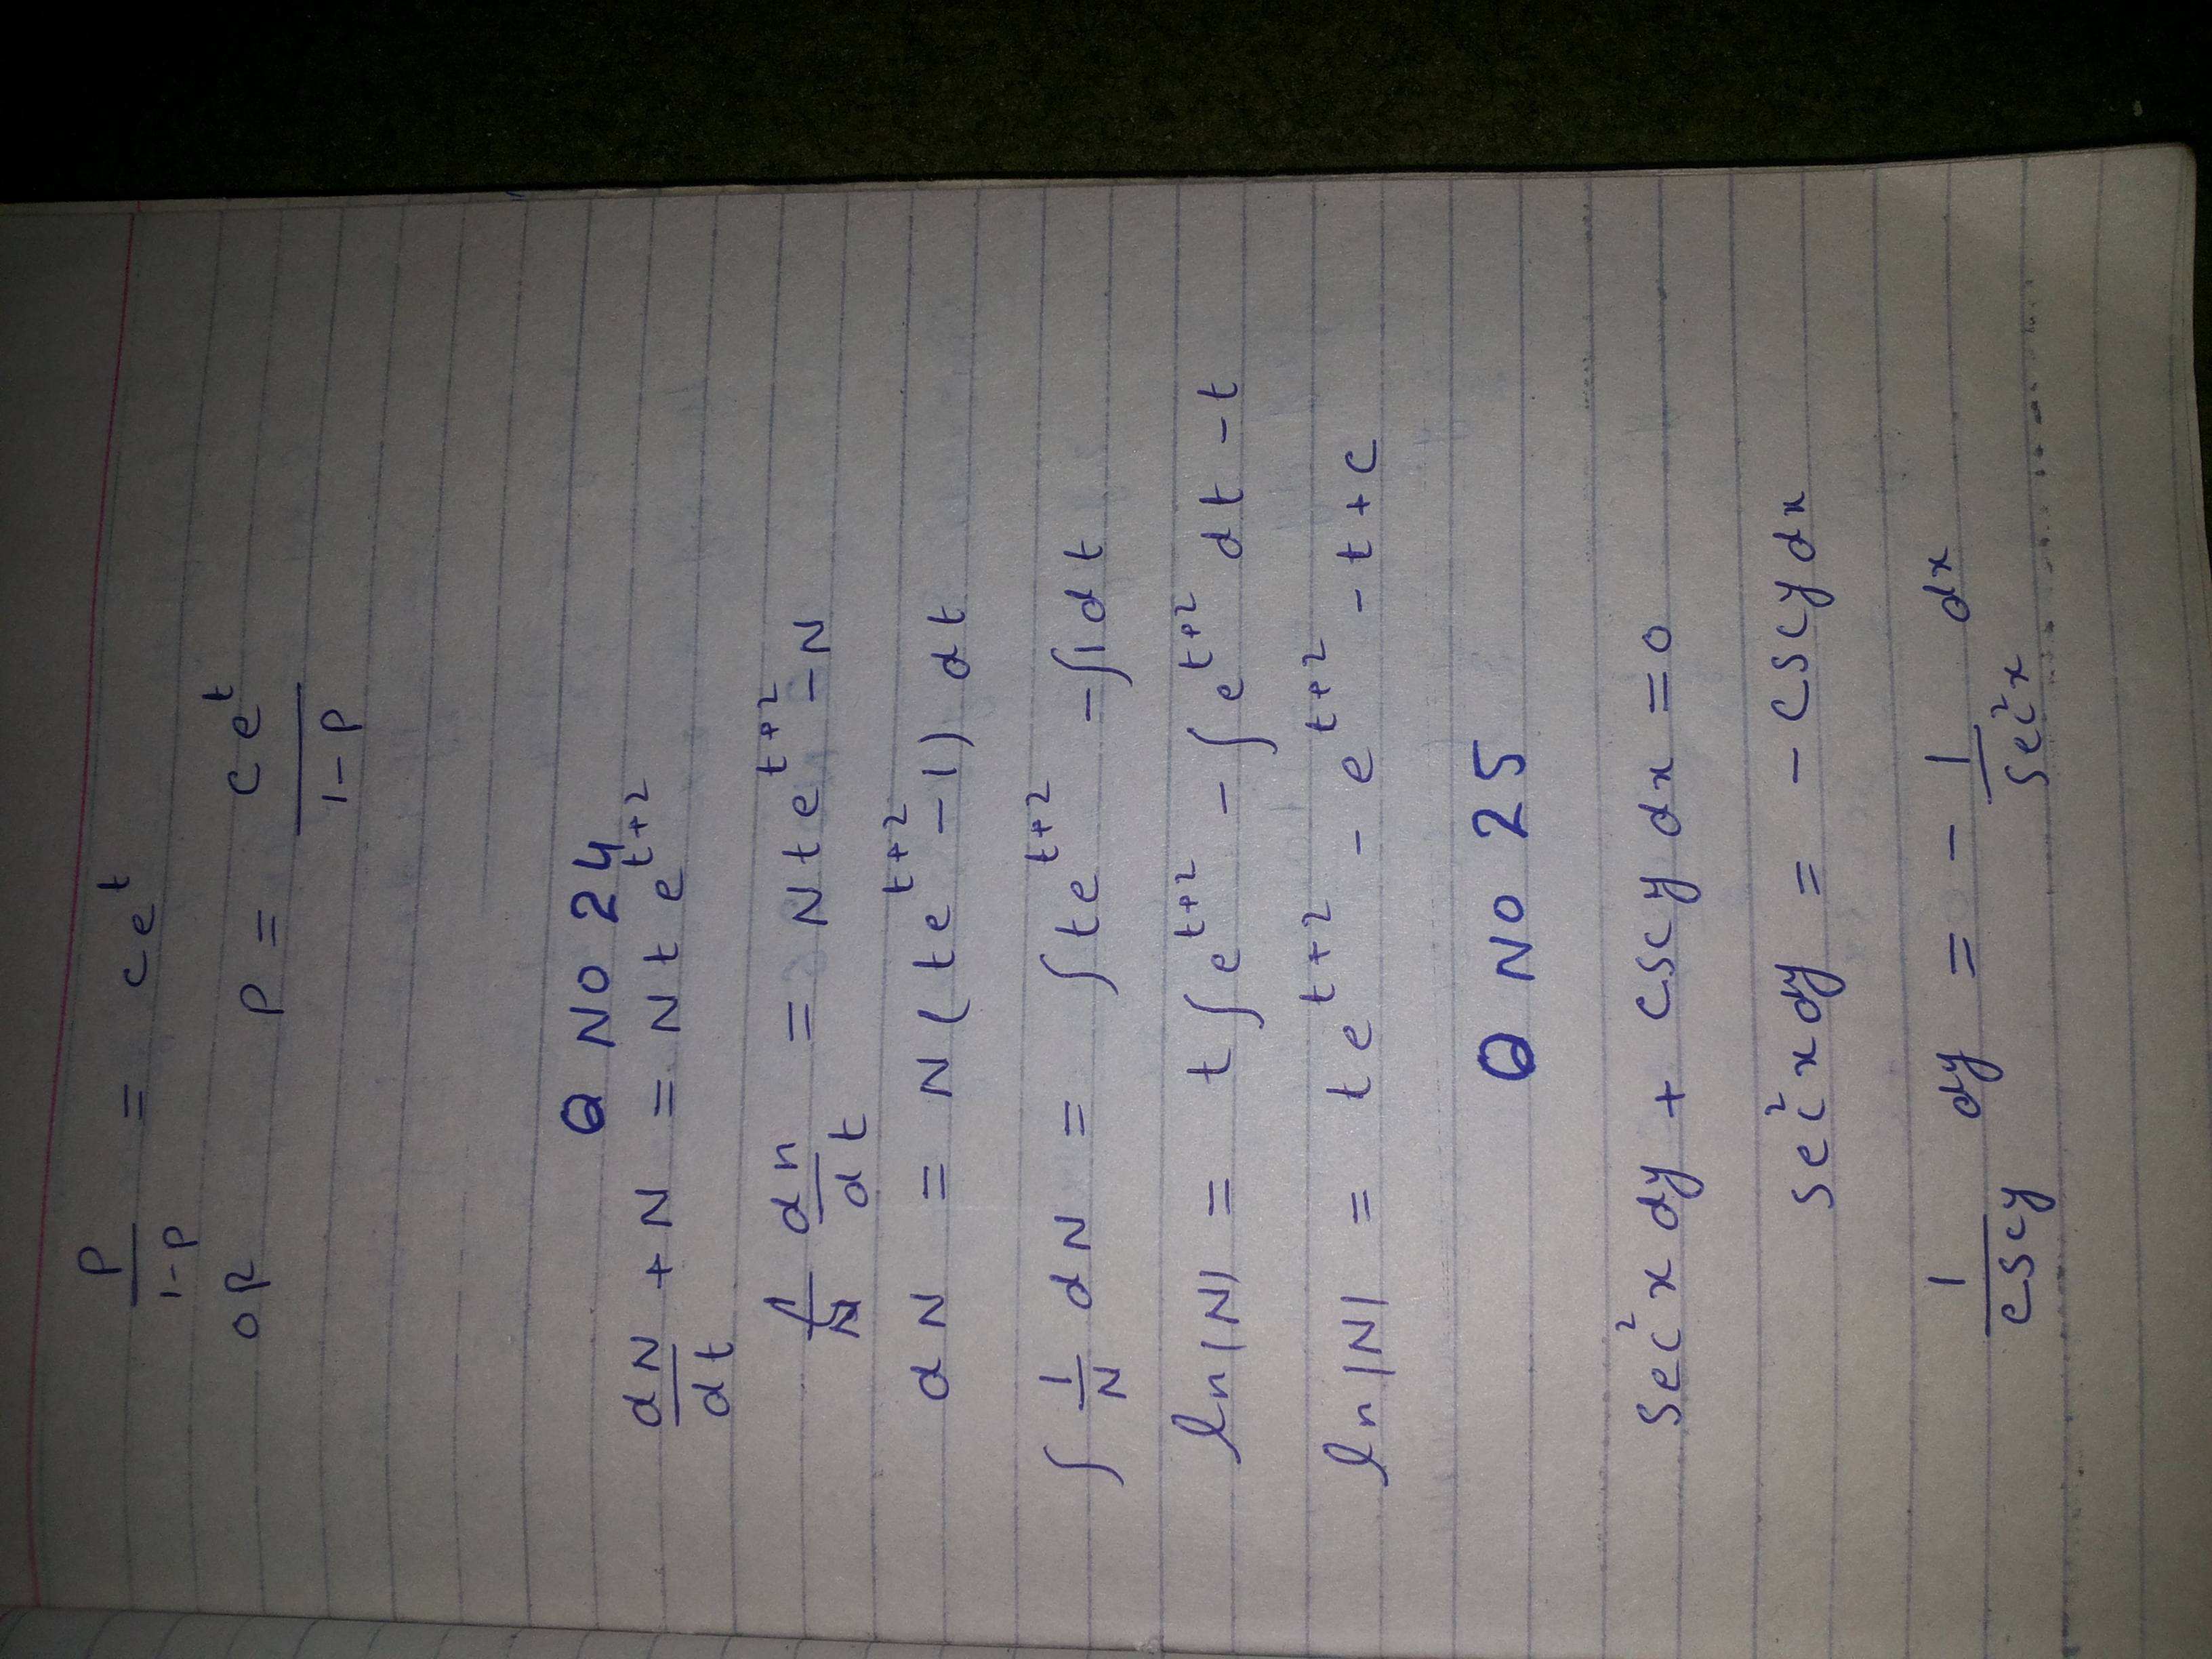 P/(1-P) = ce^t
OR P = ce^t/(1-P)
Q NO 24
dN/dt + N = Nte^(t+2)
dn/dt = Nte^(t+2) - N
dN = N(te^(t+2) - 1) dt
∫ 1/N dN = ∫te^(t+2) - ∫1dt
ln|N| = t∫e^(t+2) - ∫e^(t+2) dt - t
ln|N| = te^(t+2) - e^(t+2) - t + c
Q NO 25
sec²x dy + cscy dx = 0
sec²x dy = -cscy dx
1/cscy dy = -1/sec²x dx